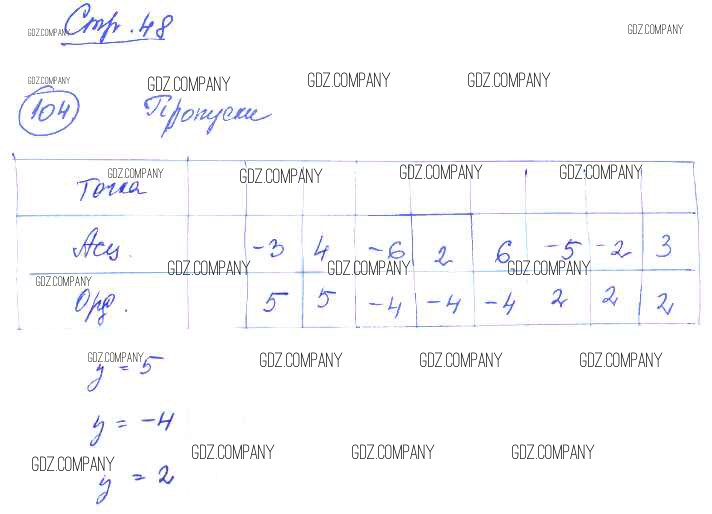 Стр. 48
GDZ.COMPANY GDZ.COMPANY
GDZ.COMPANY GDZ.COMPANY GDZ.COMPANY GDZ.COMPANY
104 Пропуски
GDZ.COMPANY GDZ.COMPANY GDZ.COMPANY GDZ.COMPANY
Точка
Асц. -3 4 -6 2 6 -5 -2 3
GDZ.COMPANY GDZ.COMPANY GDZ.COMPANY
GDZ.COMPANY
Орд. 5 5 -4 -4 -4 2 2 2
GDZ.COMPANY GDZ.COMPANY GDZ.COMPANY GDZ.COMPANY
y = 5
y = -4
GDZ.COMPANY GDZ.COMPANY GDZ.COMPANY GDZ.COMPANY
y = 2